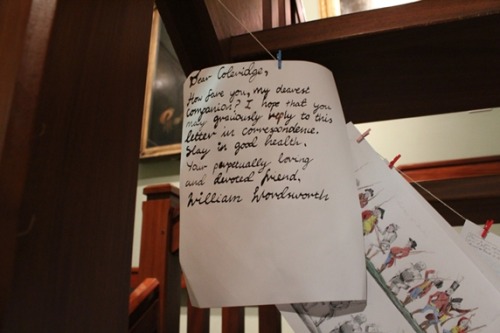 Dear Coleridge,
How fare you, my dearest
companion? I hope that you
may graciously reply to this
letter in correspondence.
Stay in good health.
Your perpetually loving
and devoted friend,
William Wordsworth